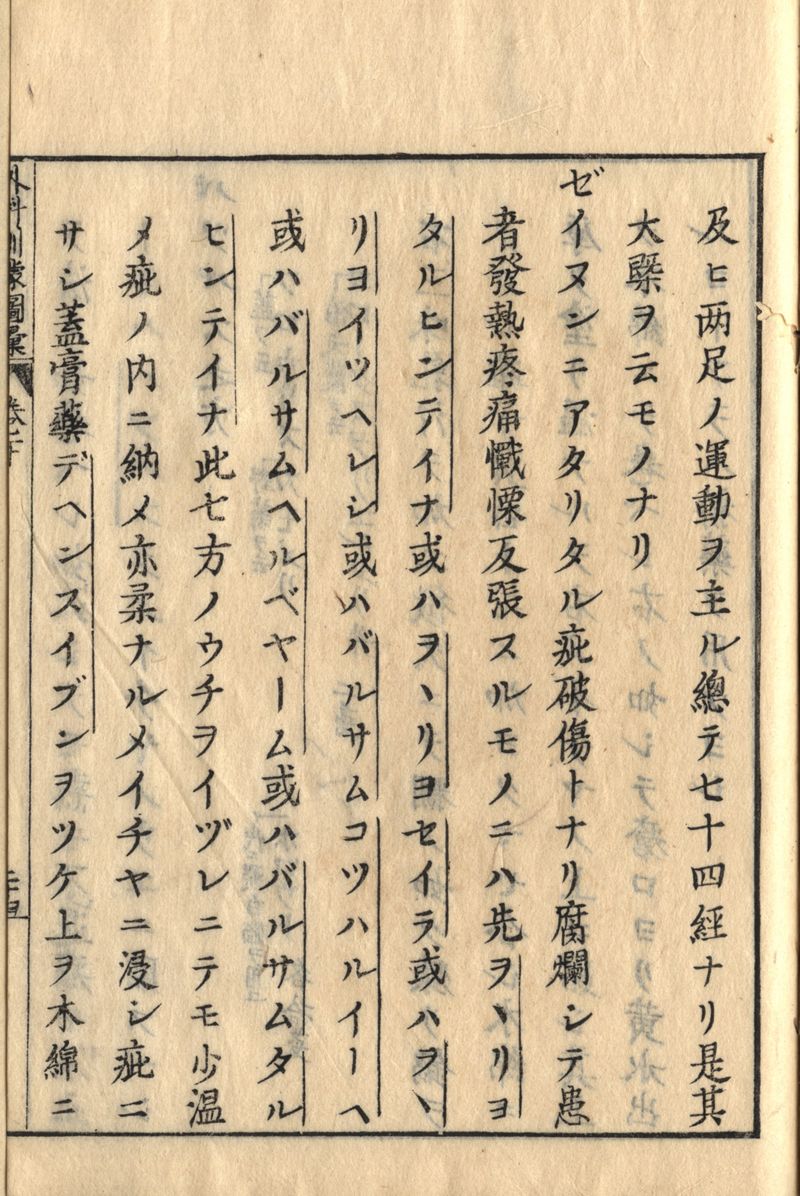 及ヒ両足ノ運動ヲ主ル總テ七十四経ナリ是其
大槩ヲ云モノナリ
ゼイヌンニアタリタル疵破傷トナリ腐爛シテ患
者發熱疼痛懺慄反張スルモノニハ先ヲヽリヨ
タルヒンテイナ或ハヲヽリヨセイラ或ハヲヽ
リヨイツヘレシ或ハバルサムコツハルイーヘ
或ハバルサムヘルベヤーム或ハバルサムタル
ヒンテイナ此七方ノウチヲイヅレニテモ少温
メ疵ノ内ニ納メ亦柔ナルメイチヤニ浸シ疵ニ
サシ蓋膏藥デヘンスイブンヲツケ上ヲ木綿ニ
外科訓蒙圖彙
巻二十